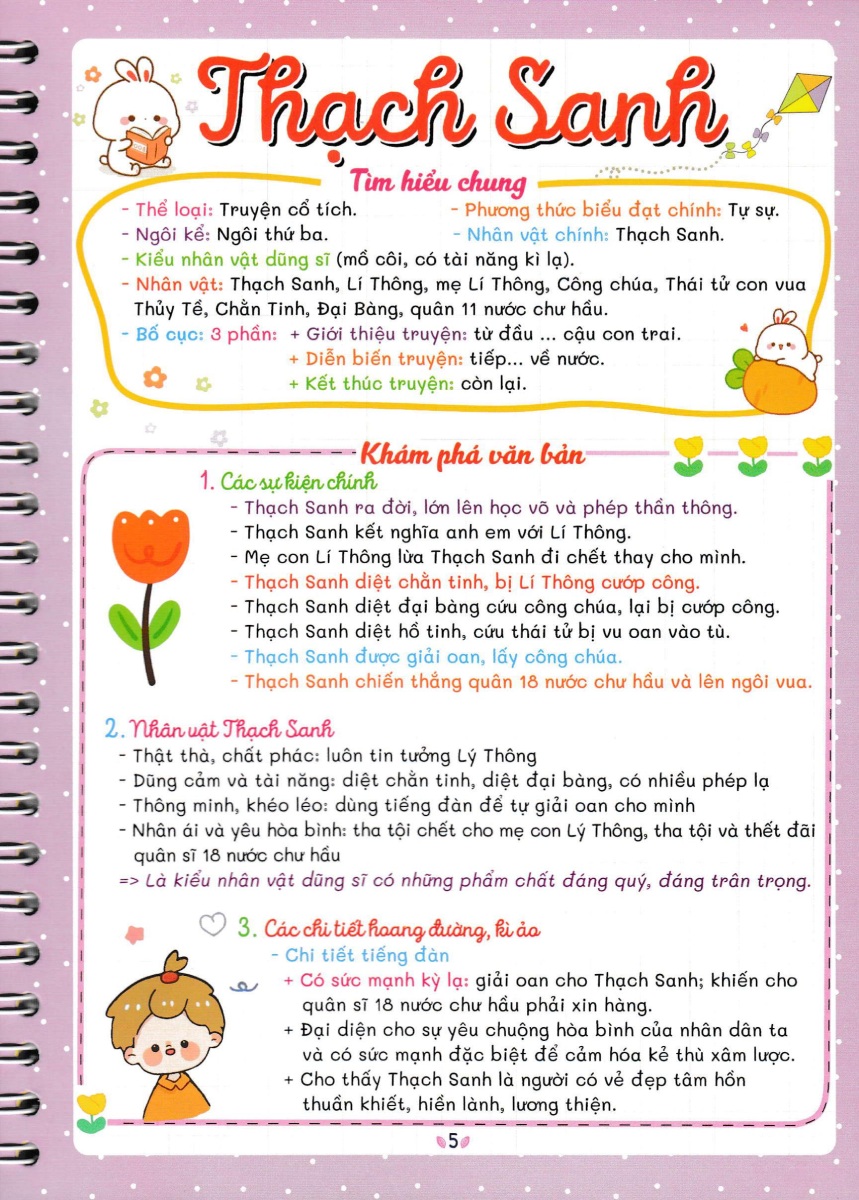 Thạch Sanh
Tìm hiểu chung
- Thể loại: Truyện cổ tích.
- Phương thức biểu đạt chính: Tự sự.
- Ngôi kể: Ngôi thứ ba.
- Nhân vật chính: Thạch Sanh.
- Kiểu nhân vật dũng sĩ (mồ côi, có tài năng kì lạ).
- Nhân vật: Thạch Sanh, Lí Thông, mẹ Lí Thông, Công chúa, Thái tử con vua
Thủy Tề, Chằn Tinh, Đại Bàng, quân 11 nước chư hầu.
- Bố cục: 3 phần: + Giới thiệu truyện: từ đầu ... cậu con trai.
+ Diễn biến truyện: tiếp... về nước.
+ Kết thúc truyện: còn lại.
Khám phá văn bản
1. Các sự kiện chính
- Thạch Sanh ra đời, lớn lên học võ và phép thần thông.
- Thạch Sanh kết nghĩa anh em với Lí Thông.
- Mẹ con Lí Thông lừa Thạch Sanh đi chết thay cho mình.
- Thạch Sanh diệt chằn tinh, bị Lí Thông cướp công.
- Thạch Sanh diệt đại bàng cứu công chúa, lại bị cướp công.
- Thạch Sanh diệt hồ tinh, cứu thái tử bị vu oan vào tù.
- Thạch Sanh được giải oan, lấy công chúa.
- Thạch Sanh chiến thắng quân 18 nước chư hầu và lên ngôi vua.
2. Nhân vật Thạch Sanh
- Thật thà, chất phác: luôn tin tưởng Lý Thông
- Dũng cảm và tài năng: diệt chằn tinh, diệt đại bàng, có nhiều phép lạ
- Thông minh, khéo léo: dùng tiếng đàn để tự giải oan cho mình
- Nhân ái và yêu hòa bình: tha tội chết cho mẹ con Lý Thông, tha tội và thết đãi
quân sĩ 18 nước chư hầu
=> Là kiểu nhân vật dũng sĩ có những phẩm chất đáng quý, đáng trân trọng.
3. Các chi tiết hoang đường, kì ảo
- Chi tiết tiếng đàn
+ Có sức mạnh kỳ lạ: giải oan cho Thạch Sanh; khiến cho
quân sĩ 18 nước chư hầu phải xin hàng.
+ Đại diện cho sự yêu chuộng hòa bình của nhân dân ta
và có sức mạnh đặc biệt để cảm hóa kẻ thù xâm lược.
+ Cho thấy Thạch Sanh là người có vẻ đẹp tâm hồn
thuần khiết, hiền lành, lương thiện.
5